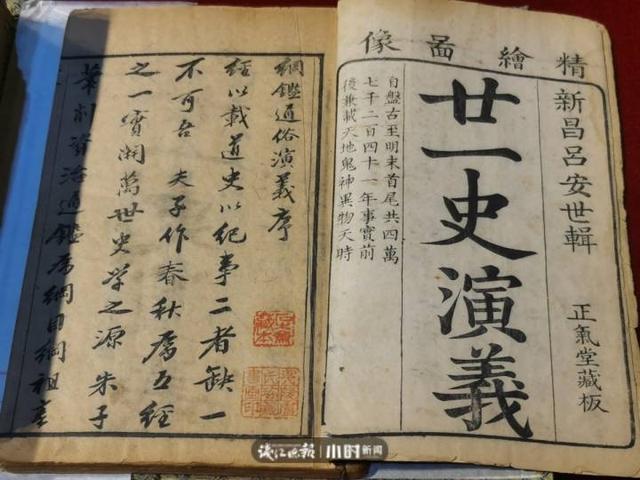 精繪啚像
新昌呂安世輯
廿一史演義
正氣堂藏板
自盤古至明末首尾共四萬
七千二百四十一年事實前
後兼載天地鬼神異物天時
綱鑑通俗演義序
經以載道史以紀事二者缺一
不可吾夫子作春秋爲五經
之一實開萬世史学之源朱子
資治通鑑爲綱目綱祖
錢江晚報 小时新闻